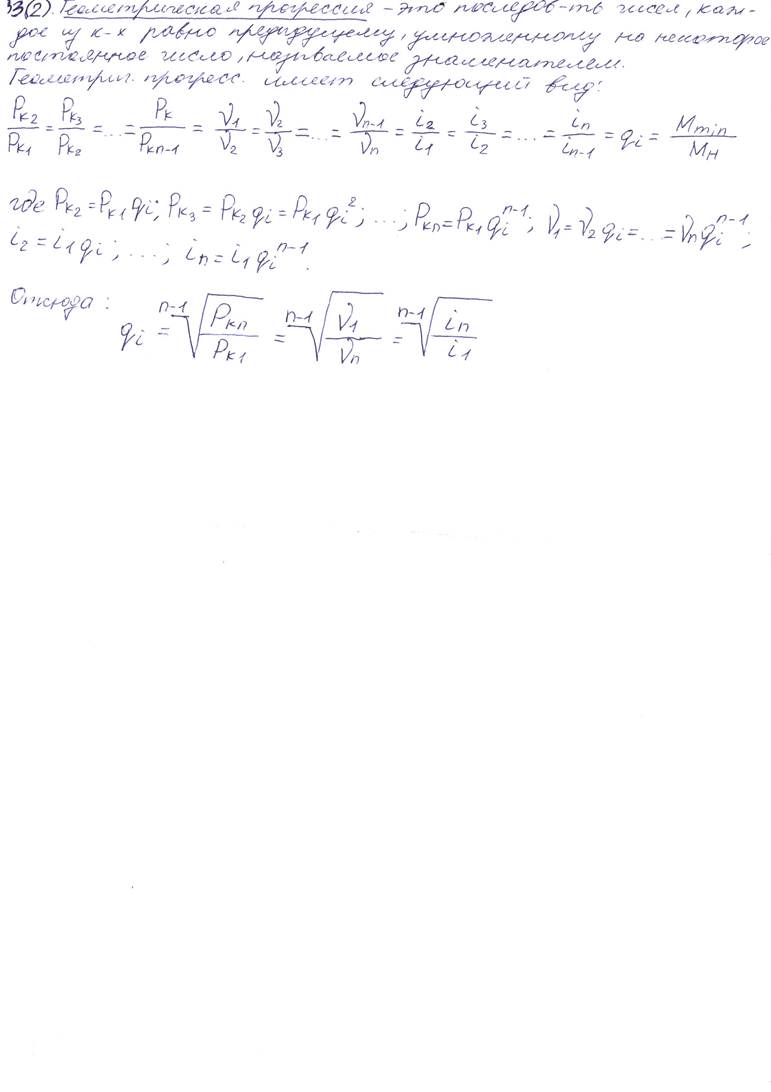 33(2). Геометрическая прогрессия – это последов-ть чисел, каж-
дое из к-х равно предыдущему, умноженному на некоторое
постоянное число, называемое знаменателем.
Геометрич. прогресс. имеет следующий вид:
Pк2/Pк1 = Pк3/Pк2 = ... = Pк/Pкn-1 = V1/V2 = V2/V3 = ... = Vn-1/Vn = i2/i1 = i3/i2 = ... = in/in-1 = qi = Mmin/Mн
где Pк2 = Pк1 qi; Pк3 = Pк2 qi = Pк1 qi^2; ...; Pкn = Pк1 qi^n-1; V1 = V2 qi = ... = Vn qi^n-1;
i2 = i1 qi; ...; in = i1 qi^n-1.
Отсюда:
qi = n-1√(Pкn/Pк1) = n-1√(V1/Vn) = n-1√(in/i1)